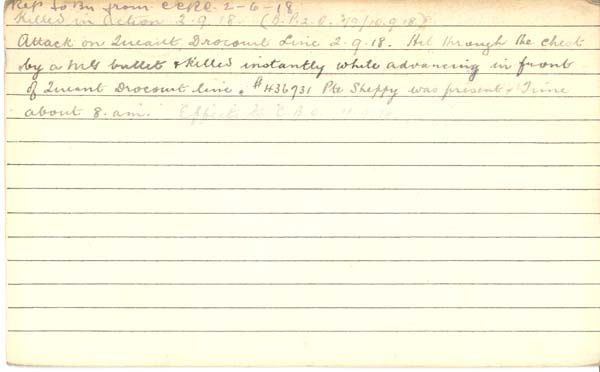 Rep to Bn from CCRC. 2-6-18
Killed in Action 2.9.18.
Attack on Queant Drocourt Line 2.9.18. Hit through the chest
by a MG bullet & killed instantly while advancing in front
of Queant Drocourt line. #436731 Pte Sheppy was present & Time
about 8. am. Effects to